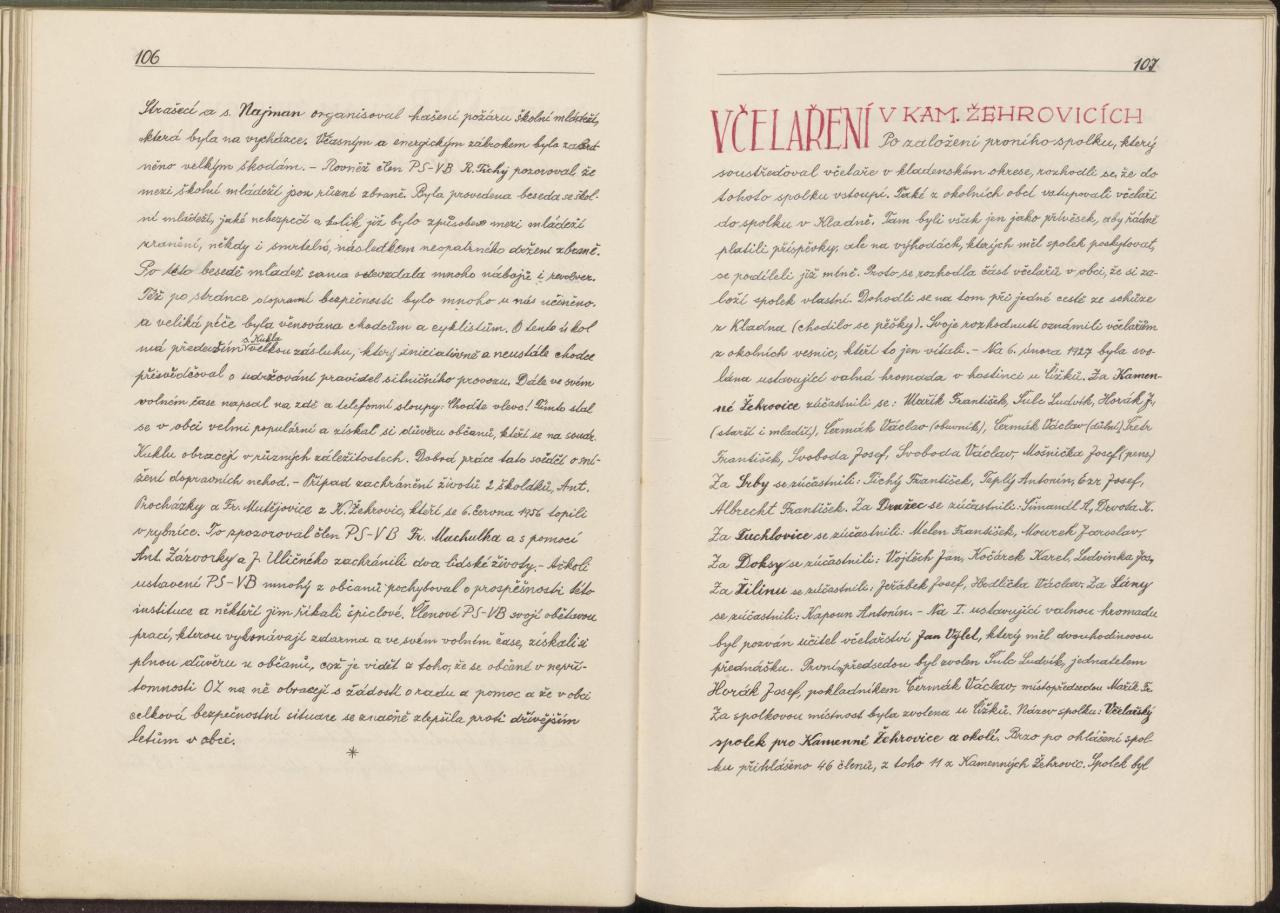 106
Strašecí a s. Najman organisoval hašení požáru školní mládeží,
která byla na vycházce. Včasným a energickým zákrokem bylo zabrá-
něno velkým škodám. – Rovněž člen PS-VB R. Tichý pozoroval že
mezi školní mládeží jsou různé zbraně. Byla provedena beseda se škol-
ní mládeží, jaké nebezpečí a kolik již bylo způsobeno mezi mládeží
zranění, někdy i smrtelné, následkem neopatrného držení zbraně.
Po této besedě mládež sama odevzdala mnoho nábojů i revolver.
Též po stránce dopravní bezpečnosti bylo mnoho u nás učiněno.
a veliká péče byla věnována chodcům a cyklistům. O tento úkol
má především s. Kukla velkou zásluhu, který iniciativně a neustále chodce
přesvědčoval o udržování pravidel silničního provozu. Dále ve svém
volném čase napsal na zdě a telefonní sloupy: Choďte vlevo! Tímto stal
se v obci velmi populární a získal si důvěru občanů, kteří se na soudr.
Kuklu obracejí v různých záležitostech. Dobrá práce tato svědčí o sní-
žení dopravních nehod. – Případ zachránění životů 2 školdků, Ant.
Procházky a Fr. Mutějovice z K. Žehrovic, kteří se 6. června 1956 topili
v rybníce. To zpozoroval člen PS-VB Fr. Machulka a s pomocí
Ant. Zázvorky a J. Uličného zachránili dva lidské životy. – Ačkoli
ustavení PS-VB mnohý z občanů pochyboval o prospěšnosti této
instituce a někteří jim říkali špiclové. Členové PS-VB svojí obětavou
prací, kterou vykonávají zdarma a ve svém volném čase, získali si
plnou důvěru u občanů, což je vidět z toho, že se občané v nepří-
tomnosti OZ na ně obracejí s žádostí o radu a pomoc a že v obci
celková bezpečnostní situace se značně zlepšila proti dřívějším
letům v obci.
107
VČELAŘENÍ V KAM. ŽEHROVICÍCH
Po založení prvního spolku, který
soustřeďoval včelaře v kladenském okrese, rozhodli se, že do
tohoto spolku vstoupí. Také z okolních obcí vstupovali včelaři
do spolku v Kladně. Tam byli však jen jako přívěsek, aby řádně
platili příspěvky, ale na výhodách, kterých měl spolek poskytovat,
se podíleli již méně. Proto se rozhodla část včelařů v obci, že si za-
loží spolek vlastní. Dohodli se na tom při jedné cestě ze schůze
z Kladna (chodilo se pěšky). Svoje rozhodnutí oznámili včelařům
z okolních vesnic, kteří to jen vítali. – Na 6. února 1927 byla svo-
lána ustavující valná hromada v hostinci u Čížků. Za Kamen-
né Žehrovice zúčastnili se: Mařík František, Šulc Ludvík, Horák J.,
(starší i mladší), Čermák Václav (obuvník), Čermák Václav (dělní.) Tretr
František, Svoboda Josef, Svoboda Václav, Mošnička Josef (pens.)
Za Srby se zúčastnili: Tichý František, Teplý Antonín, Ezr Josef,
Albrecht František. Za Družec se zúčastnili: Šimandl A, Drvota K.
Za Tuchlovice se zúčastnili: Melen František, Mourek Jaroslav,
Za Doksy se zúčastnili: Vojtěch Jan, Kočárek Karel, Ludvinka Jos,
Za Žilinu se zúčastnili: Jeřábek Josef, Hodlička Václav. Za Lány
se zúčastnili: Kapoun Antonín. – Na I. ustavující valnou hromadu
byl pozván učitel včelařství Jan Výlet, který měl dvouhodinovou
přednášku. Prvním předsedou byl zvolen Šulc Ludvík, jednatelem
Horák Josef, pokladníkem Čermák Václav, místopředsedou Mařík Fr.
Za spolkovou místnost byla zvolena u Čížků. Název spolku: Včelařský
spolek pro Kamenné Žehrovice a okolí. Brzo po ohlášení spol-
ku přihlášeno 46 členů, z toho 11 z Kamenných Žehrovic. Spolek byl